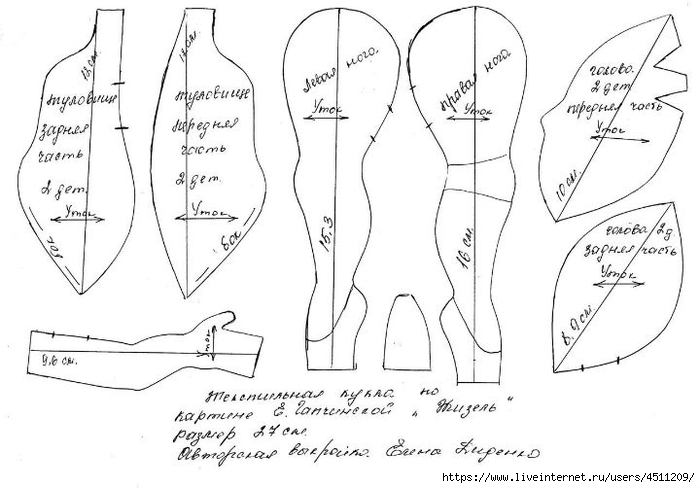 18 см.
туловище
задняя
часть
2 дет.
Уток
бок
18 см.
туловище
передняя
часть
2 дет.
Уток
бок
Левая нога.
Уток
15.3
правая нога
Уток
16 см.
голова.
2 дет
передняя часть
Уток
10 см.
голова 2д.
задняя часть
Уток
8.9 см.
9.6 см.
Уток
Текстильная кукла по
картине Е. Гапчинской „Жизель"
размер 27 см.
Авторская выкройка. Елена Диденко
https://www.liveinternet.ru/users/4511209/